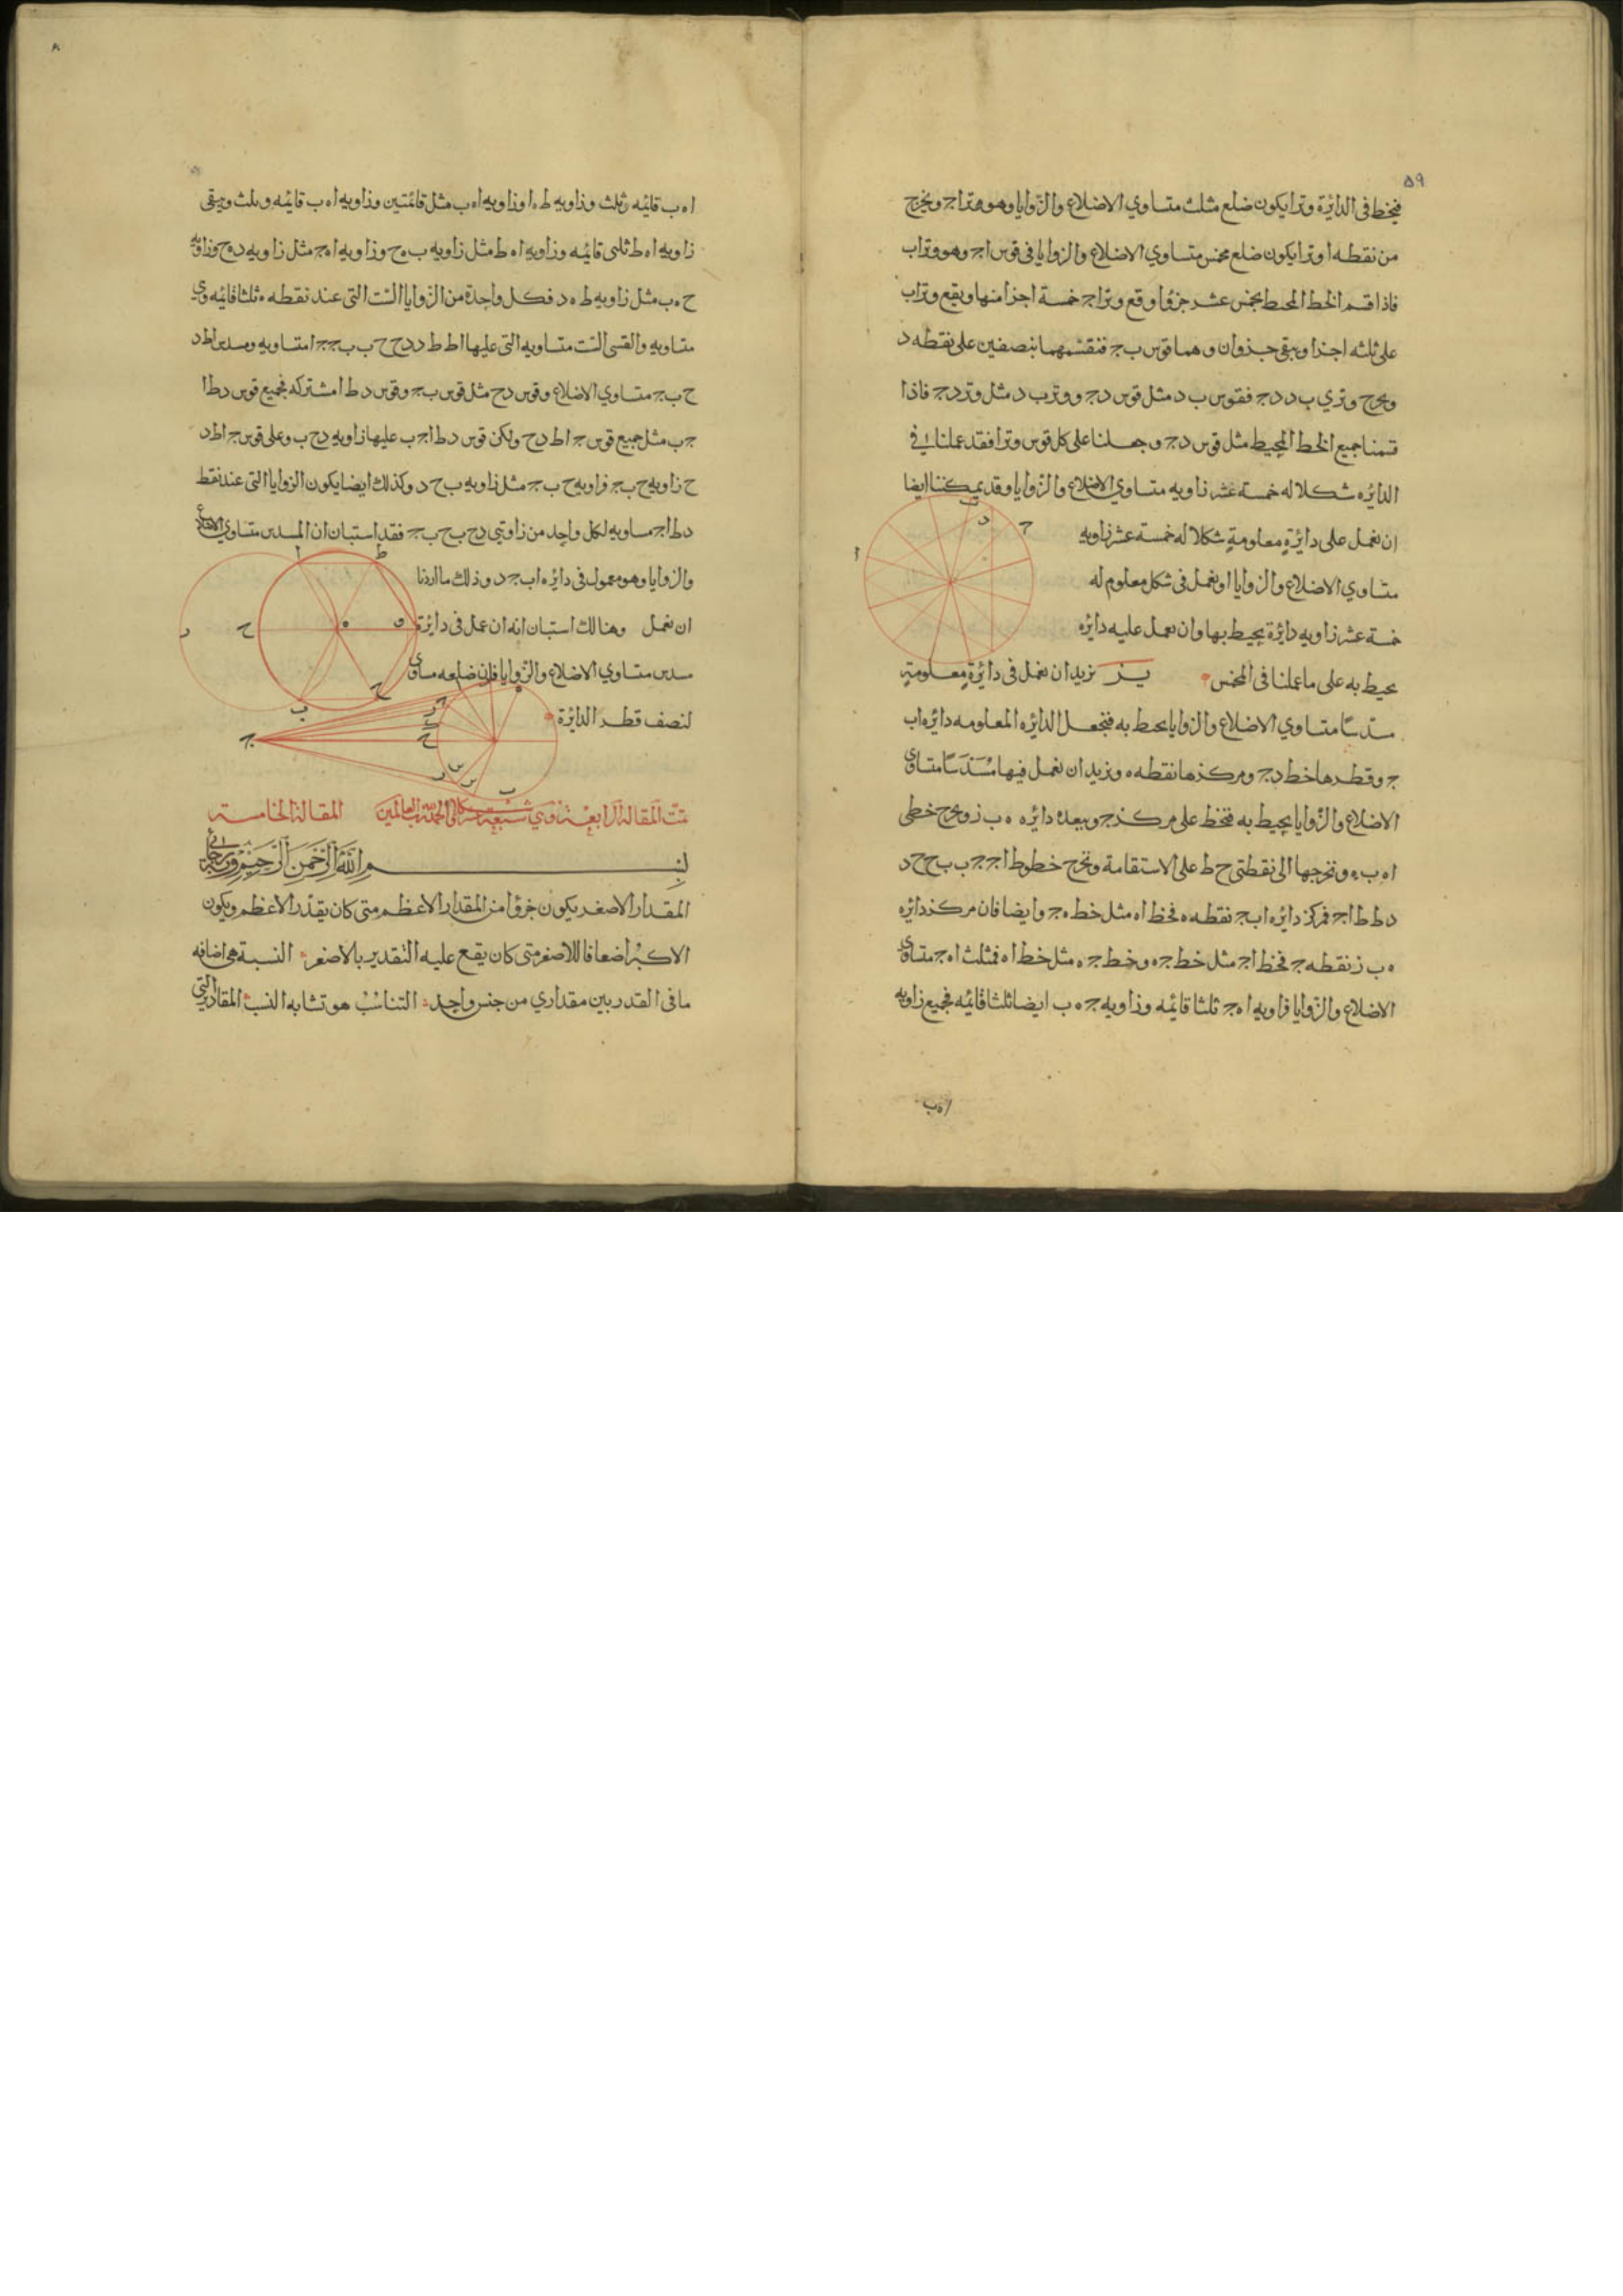 ٥٩
فيخط فى الدائرة وترا يكون ضلع مثلث متساوي الاضلاع والزوايا وهو وتر اجـ ويخرج
من نقطه ا وترا يكون ضلع مخمس متساوي الاضلاع والزوايا فى قوس اجـ وهو وتر اب
فاذا قسم الخط المحيط بخمس عشر جزؤا وقع وتر اجـ خمسة اجزا منها ويقع وتر اب
على ثلثه اجزا ويبقى جزوان وهما قوس ب جـ فنقسمهما بنصفين على نقطه د
ويخرج وتري ب د د جـ فقوس ب د مثل قوس د جـ ووتر ب د مثل وتر د جـ فاذا
قسمنا جميع الخط المحيط مثل قوس د جـ وجعلنا على كل قوس وترا فقد عملنا فى
الدائره شكلا له خمسة عشر زاويه متساوي الاضلاع والزوايا وقد يمكننا ايضا
ان نعمل على دائرة معلومة شكلا له خمسة عشر زاويه
متساوي الاضلاع والزوايا او نعمل فى شكل معلوم له
خمسة عشر زاويه دائرة يحيط بها وان نعمل عليه دائره
يحيط به على ما عملنا فى المخمس يز نريد ان نعمل فى دائرة معلومة
مسدسا متساوي الاضلاع والزوايا يحيط به فنجعل الدائره المعلومه دائره اب
جـ وقطرها خط د جـ ومركزها نقطه ه ونريد ان نعمل فيها مسدسا متساوي
الاضلاع والزوايا يحيط به فنخط على مركز جـ وببعد ه دائره ه ب ز ونخرج خطى
ا ه ب ه ونخرجها الى نقطتى ح ط على الاستقامة ونخرج خطوط اجـ جـ ب ب ح ح د
د ط ط ا جـ فمركز دائره اب جـ نقطه ه فخط اه مثل خط ه جـ وايضا فان مركز دائره
ه ب ز نقطه جـ فخط اجـ مثل خط جـ ه وخط جـ ه مثل خط اه فمثلث اه جـ متساوي
الاضلاع والزوايا فزاويه ا ه جـ ثلثا قائمه وزاويه جـ ه ب ايضا ثلثا قائمه فجميع زاويه
ا ه ب
ا ه ب قائمه وثلث وزاويه ط ه ا وزاويه ا ه ب مثل قائمتين وزاويه ا ه ب قائمه وثلث ويبقى
زاويه ا ه ط ثلثى قائمه وزاويه ا ه ط مثل زاويه ب ه ح وزاويه ا ه جـ مثل زاويه د ه ح وزاويه
ح ه ب مثل زاويه ط ه د فكل واحدة من الزوايا الست التى عند نقطه ه ثلثا قائمه وهي
متساويه والقسى الست متساويه التى عليها ا ط ط د د ح ح ب ب جـ جـ ا متساويه ومسدس ا ط د
ح ب جـ متساوي الاضلاع وقوس د ح مثل قوس ب جـ وقوس د ط ا مشتركه فجميع قوس د ط ا
جـ ب مثل جميع قوس جـ ا ط د ح ولكن قوس د ط ا جـ ب عليها زاويه د ح ب وعلى قوس جـ ا ط د
ح زاويه ح ب جـ فزاويه ح ب جـ مثل زاويه ب ح د وكذلك ايضا يكون الزوايا التى عند نقط
د ط ا جـ مساويه لكل واحد من زاويتى د ح ب ح ب جـ فقد استبان ان المسدس متساوي الاضلاع
والزوايا وهو معمول فى دائره اب جـ د وذلك ما اردنا
ان نعمل وهنالك استبان انه ان عمل فى دايرة
مسدس متساوي الاضلاع والزوايا فان ضلعه مساوي
لنصف قطر الدائرة
تمت المقالة الرابعة وهي سبعة عشر شكلا والحمد لله رب العالمين المقالة الخامسة
بسم الله الرحمن الرحيم
المقدار الاصغر يكون جزؤا من المقدار الاعظم متى كان يقدر الاعظم ويكون
الاكبر اضعافا للاصغر متى كان يقع عليه التقدير بالاصغر النسبة هى اضافه
ما فى القدر بين مقداري من جنس واحد التناسب هو تشابه النسب المقادير التي